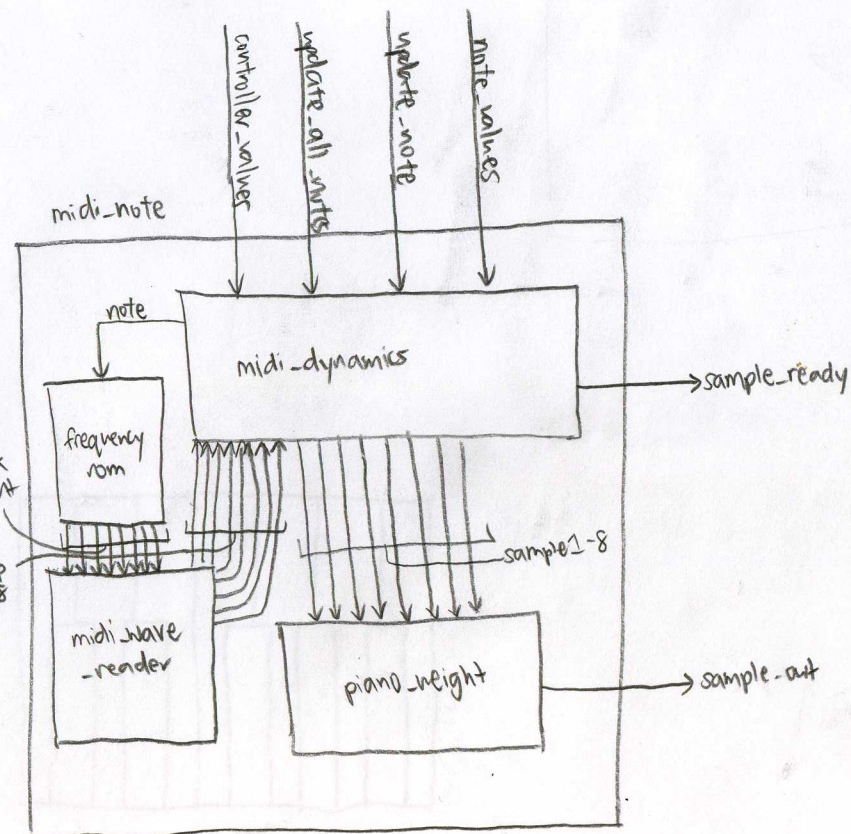 controller_values
update_all_notes
update_note
note_values
midi_note
note
midi_dynamics
sample_ready
frequency
rom
sample1-8
midi_wave
_reader
piano_weight
sample_out